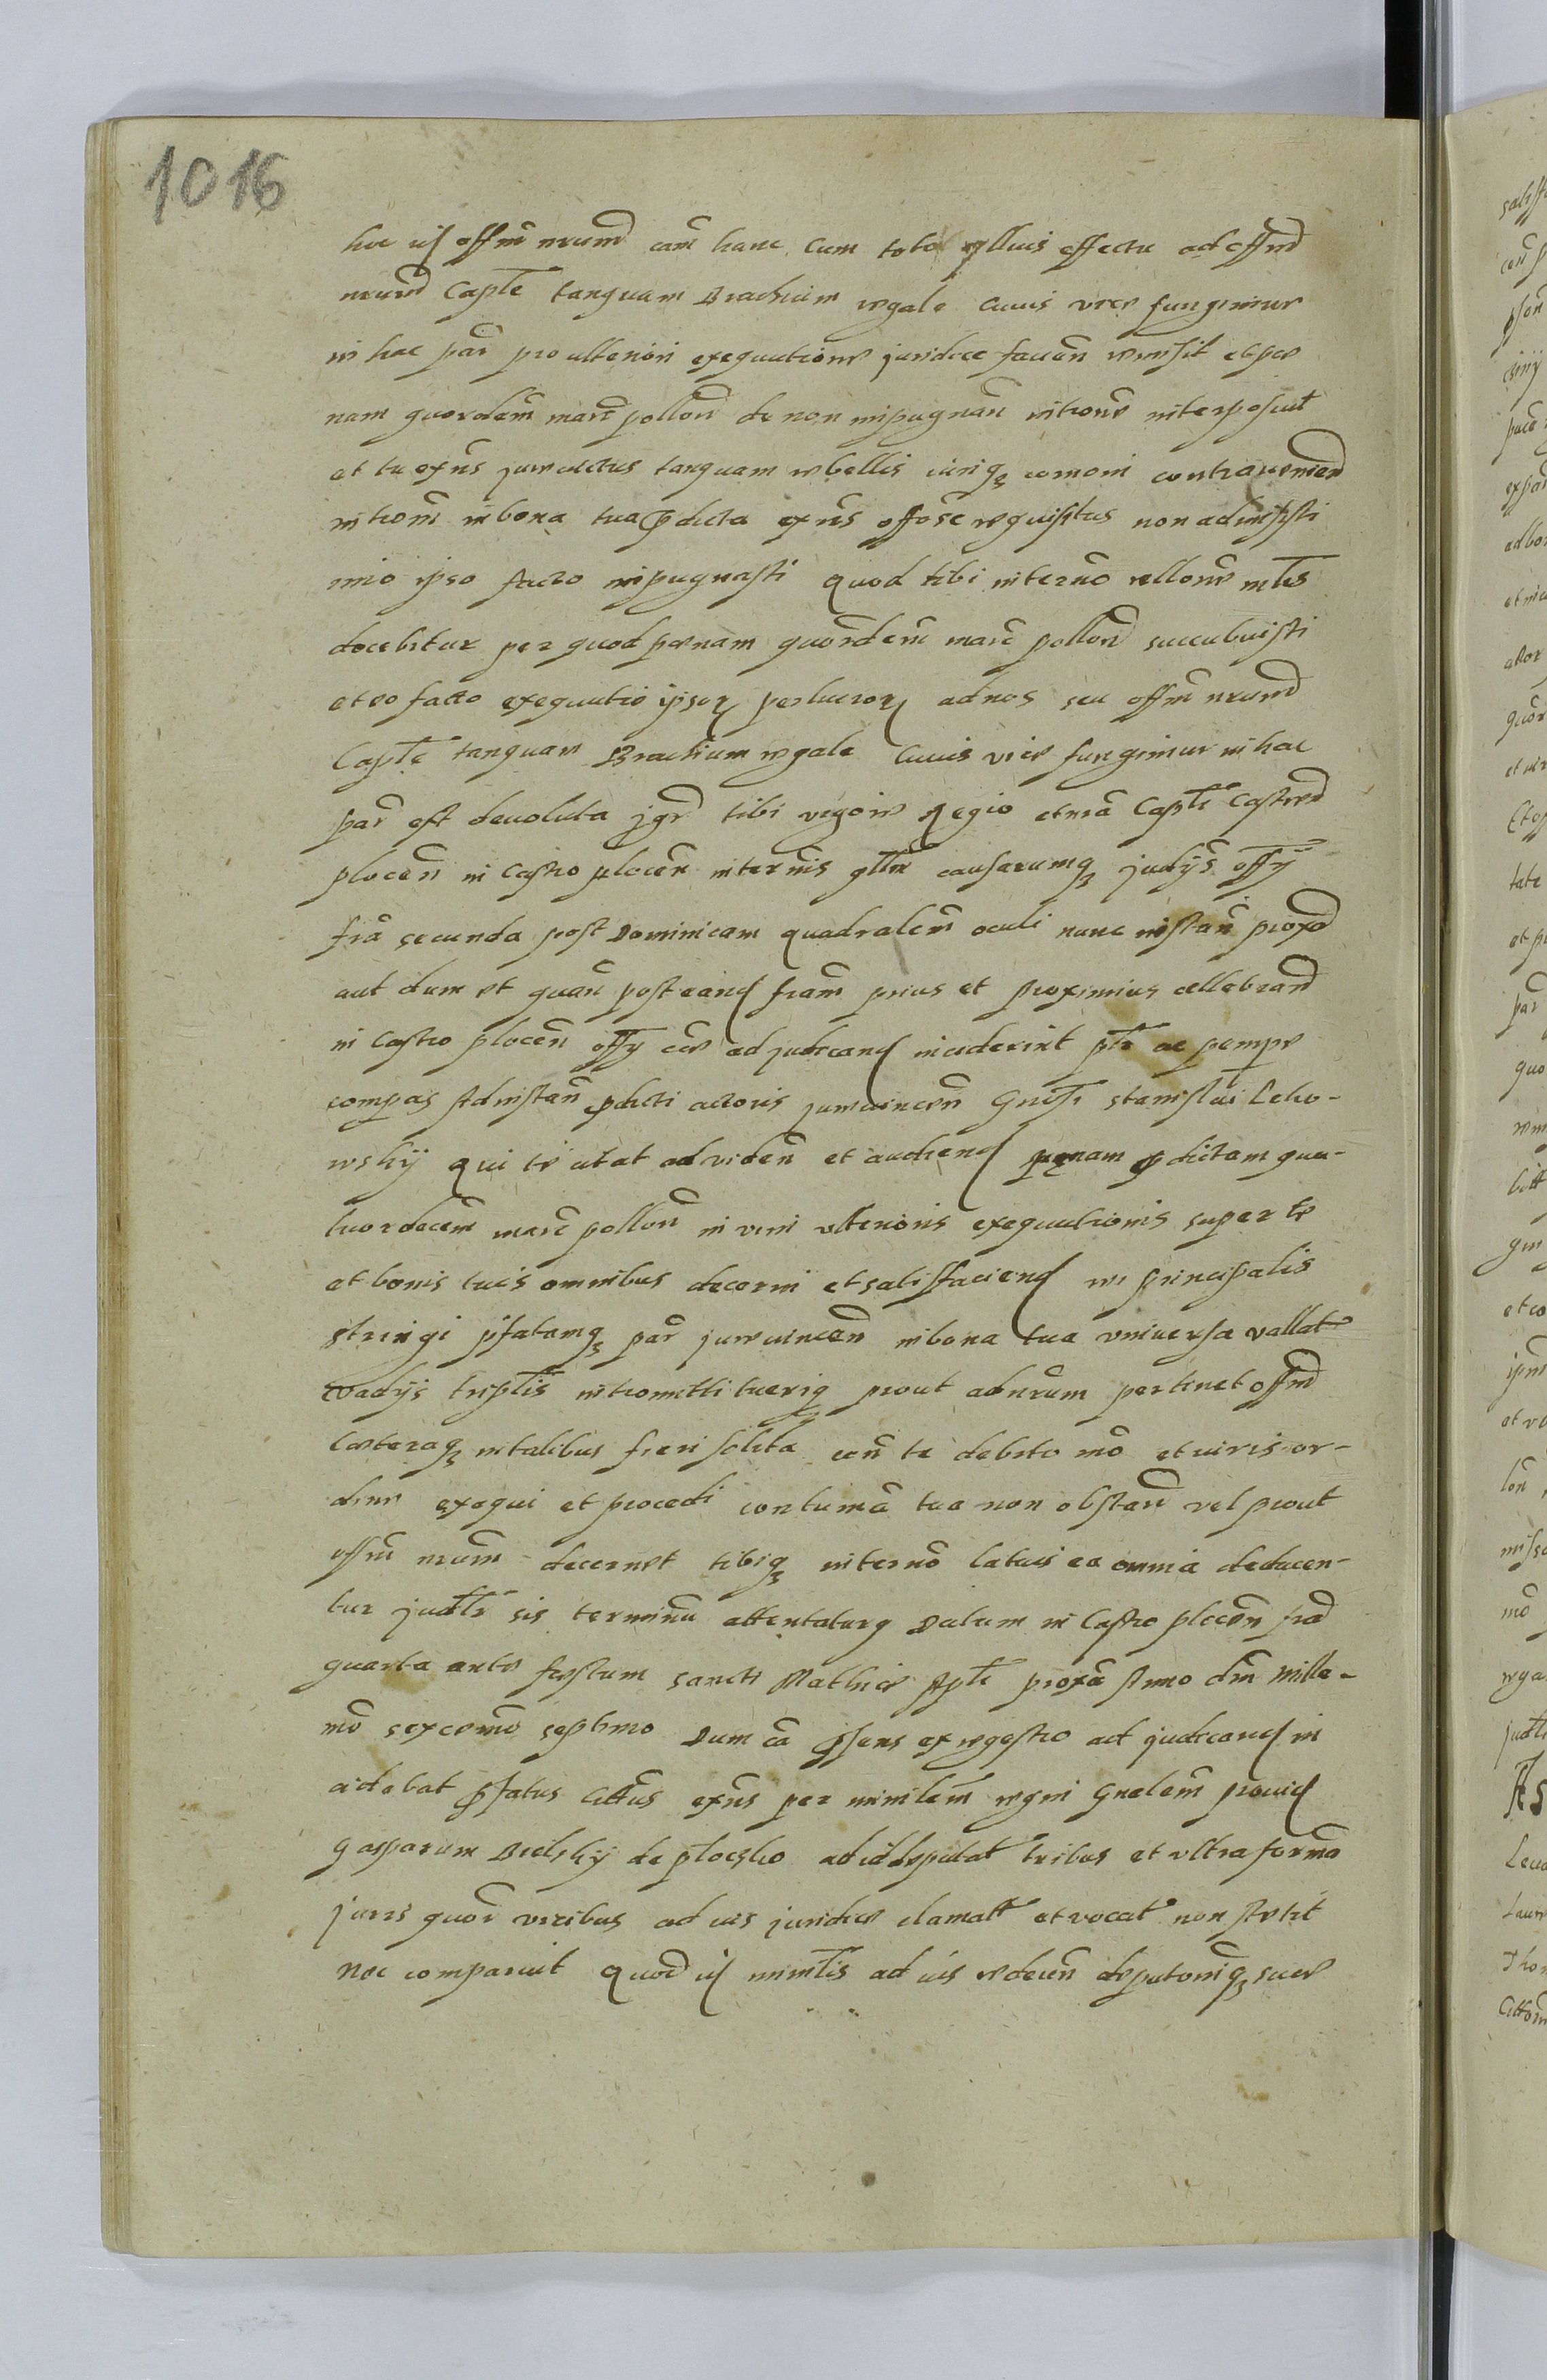 1016
hoc id offm nrum cam hanc cum toto illius effectu ad offm
nrum Captle tanquam Brachium regale cuius vice fungimur
in hac par pro ulteriori exequutione juridice facien remisit et poe
nam quordem marc pollon de non impugnan introne interposuit
et tu exns jurevictus tanquam rebellis iuriq comoni contravenien
introm in bona tua pdicta exns offose requisitus non admisisti
imo ipso facto impugnasti quod tibi in termo rellone mlis
docebitur per quod poenam quordem marc pollon succubuisti
et eo facto exequutio ipsor perlucror ad nos seu offm nrum
Captle tanquam Brachium regale cuius vice fungimur in hac
par est devoluta jgr tibi vigore Regio et nra Captli Castren
plocen in Castro plocen in termis qllm causarumq judys offy
fria secunda post Dominicam quadralem oculi nunc instan proxo
aut dum et quan post eand friam prius et proximius cellebran
in Castro plocen offy ce ad judicand inciderint ptr ac pempe
compas Ad instan pdicti actoris jurevincen Gnisi Stanislai Leko-
wskÿ qui te citat ad viden et audiend poenam pdictam qua-
tuordecem marc pollon in vim ulterioris exequutionis super te
et bonis tuis omnibus decerni et satisfaciend re principalis
stringi pfatamq par jurevincen in bona tua universa vallat
vadijs triplis intromitti tueriq prout ad nrum pertinet offm
Coeteraq in talibus fieri solita con te debito mo et iuris or-
dine exequi et procedi contuma tua non obstan vel prout
offm nrum decernet tibiq in termo latius ea omnia deducen-
tur judlr sis terminu attentaturq Datum in Castro plocen fra
quarta ante festum sancti Mathie Apli proxa Anno dm Mille-
mo sexcemo septimo Dum ca psens ex regestro ad judicand in
cidebat pfatus Cittus exns per minilem regni Gnalem provid
Gasparum Bielskÿ de plocsko ad id deputat tribus et ultra forma
juris quor vicibus ad ius juridice clamat et vocat non stetit
nec comparuit Quod id minlis ad ius redeun deputoniq sue